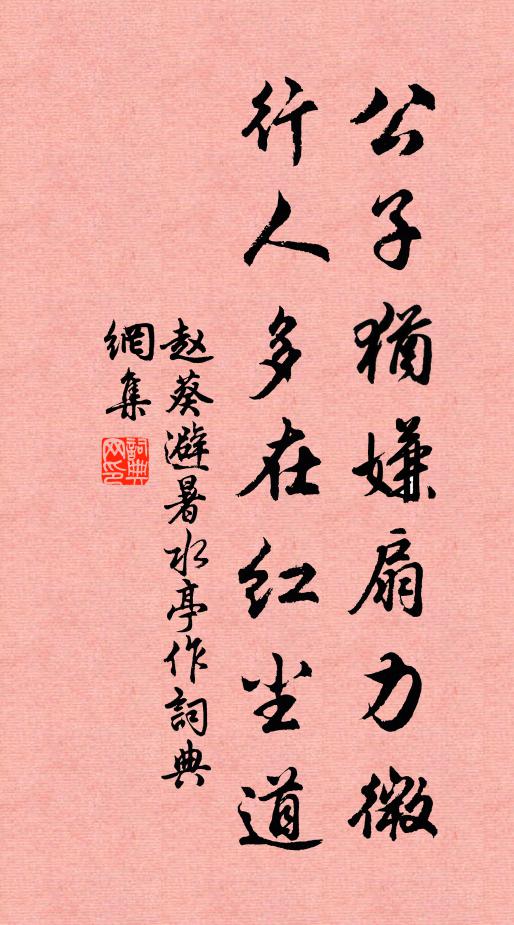 公子犹嫌扇力微
行人多在红尘道
赵葵避暑水亭作詞典
網集
詞典
网印